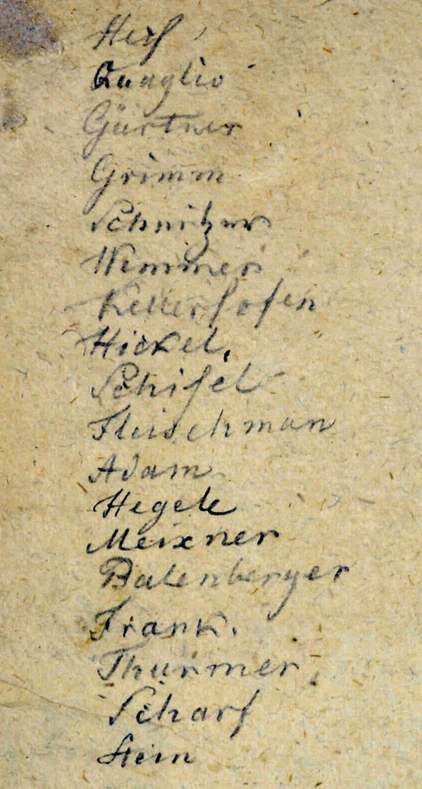 Heß
Quaglio
Gürtner
Grimm
Schnitzer
Wimmer
Kellerhofen
Hickel.
Schifel
Fleischman
Adam
Hegele
Meixner
Batenberger
Frank.
Thurmer
Scharf
Stein